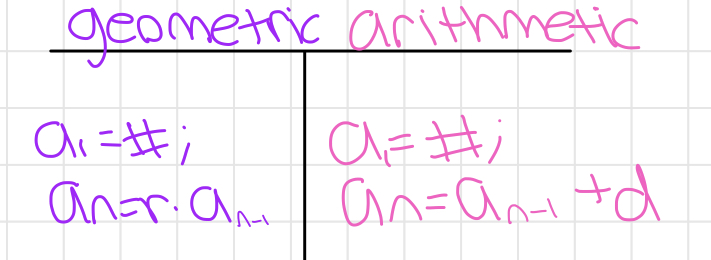 geometric arithmetic
a₁ = #; a₁ = #;
aₙ = r · aₙ₋₁ aₙ = aₙ₋₁ + d